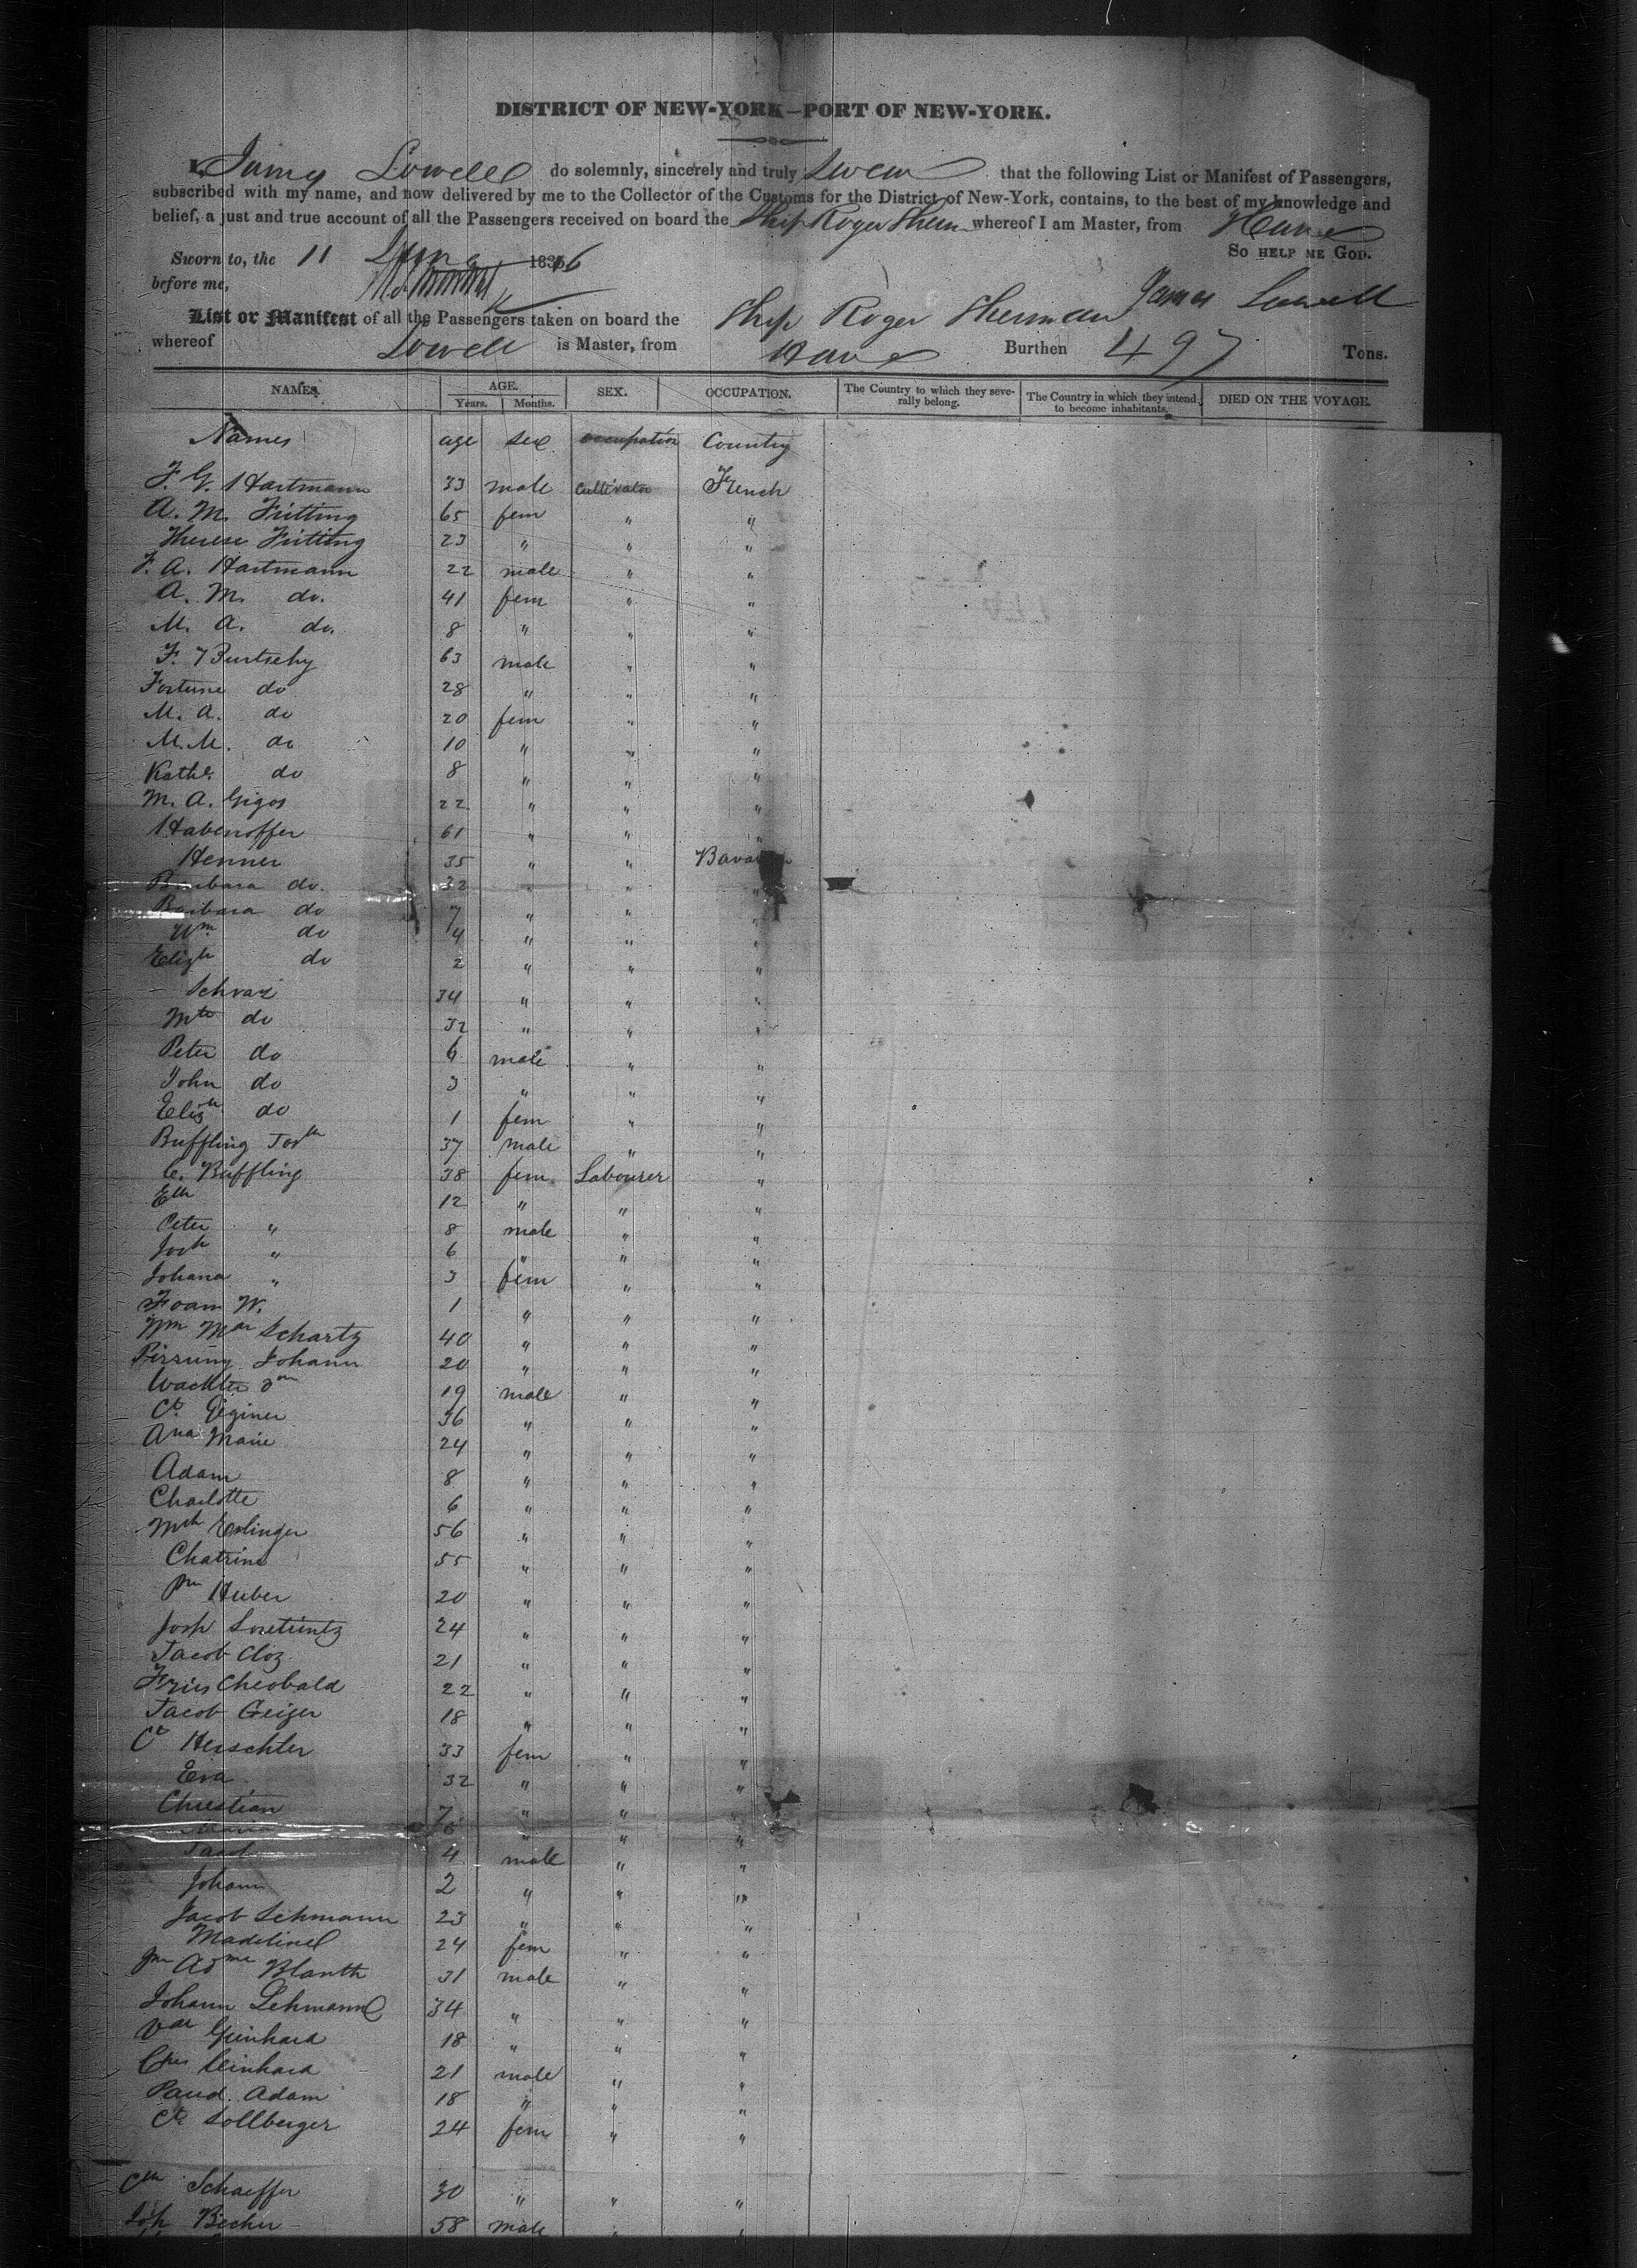 DISTRICT OF NEW-YORK—PORT OF NEW-YORK.
I, James Lowell do solemnly, sincerely and truly swear that the following List or Manifest of Passengers,
subscribed with my name, and now delivered by me to the Collector of the Customs for the District of New-York, contains, to the best of my knowledge and
belief, a just and true account of all the Passengers received on board the Ship Roger Sherm whereof I am Master, from Havre
Sworn to, the 11 June 1836 So HELP ME GOD.
before me,
James Lowell
List or Manifest of all the Passengers taken on board the Ship Roger Sherman
whereof Lowell is Master, from Havre Burthen 497 Tons.
NAMES. AGE. SEX. OCCUPATION. The Country to which they severally belong. The Country in which they intend to become inhabitants. DIED ON THE VOYAGE.
Years. Months.
Names age sex occupation Country
F. G. Hartmann 33 male Cultivator French
A. M. Fritting 65 fem " "
Therese Fritting 23 " " "
F. A. Hartmann 22 male " "
A. M. do. 41 fem " "
M. A. do. 8 " " "
F. Burtschy 63 male " "
Fortune do 28 " " "
M. A. do 20 fem " "
M. M. do 10 " " "
Kathe. do 8 " " "
M. A. Gigos 22 " " "
Habenoffer 61 " " "
Henner 35 " "
Barbara do. 32 " " "
Barbara do 7 " " "
Wm do 4 " " "
Elizh do 2 " " "
Schvaz 34 " " "
Mte do 32 " " "
Peter do 6 male " "
John do 3 " " "
Elizh do 1 fem " "
Buffling Josh 37 male " "
C. Buffling 38 fem Labourer "
Eth 12 " " "
Peter " 8 male " "
Josh " 6 " " "
Johana " 3 fem " "
Foam W. 1 " " "
Schartz 40 " " "
Pirrung Johann 20 " " "
Wachter 19 male " "
Ct. Giginer 36 " " "
Ana Marie 24 " " "
Adam 8 " " "
Charlotte 6 " " "
Mch Erlinger 56 " " "
Chatrine 55 " " "
Huber 20 " " "
Josh 24 " " "
Jacob Cloz 21 " " "
Fries Cheobald 22 " " "
Jacob Geiger 18 " " "
Ct Herschter 33 fem " "
Eva 32 " " "
Christian 7 " " "
6 " " "
Jacob 4 male " "
Johann 2 " " "
Jacob Lehmann 23 " " "
Madeline 24 fem " "
Blanth 31 male " "
Johann Lehmann 34 " " "
18 " " "
Leinhard 21 male " "
Adam 18 " " "
Ct Sollberger 24 fem " "
Cth Schaeffer 30 " " "
Joh Becher 58 male " "